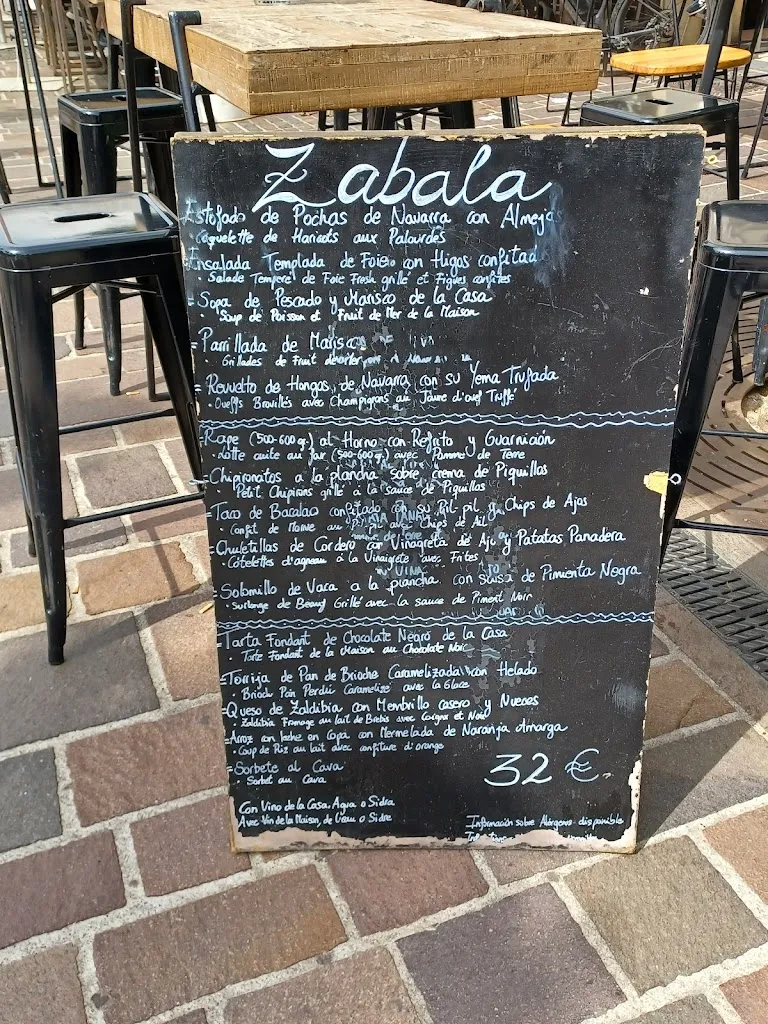 Zabala
Estofado de Pochas de Navarra con Almejas
Caquelette de Haricots aux Palourdes
Ensalada Templada de Foie con Higos confitad
Salade Tempere de Foie Fresh grillé et Figues confites
Sopa de Pescado y Marisco de la Casa
Soup de Poisson et Fruit de Mer de la Maison
Parrillada de Marisco
Grillades de Fruit
Revuelto de Hongos de Navarra con su Yema Trufada
Oueffs Brouillés avec Champignons au Jaune d'oeuf Truffé
Rape (500-600gr.) al Horno con Refrito y Guarnición
Lotte cuite au four (500-600gr.) avec Pomme de Terre
Chipironatos a la plancha sobre crema de Piquillos
Petit Chipirons grillé a la sauce de Piquillos
Taco de Bacalao confitado con su pil pil y Chips de Ajos
Confit de Morue au pil pil avec Chips de Ail
Chuletillas de Cordero con Vinagreta de Ajo y Patatas Panadera
Côtelettes d'agneau a la Vinaigrete avec Frites
Solomillo de Vaca a la plancha con salsa de Pimienta Negra
Surlonge de Beauf Grillé avec la sauce de Piment Noir
Tarta Fondant de Chocolate Negro de la Casa
Tarte Fondant de la Maison au Chocolate Noir
Torrija de Pan de Brioche Caramelizada con Helado
Brioch Pain Perdú Caramelizé avec la Glace
Queso de Zaldibia con Membrillo casero y Nueces
Zaldibia Fromage au lait de Brebis avec Coigns et Noix
Arroz con leche en Copa con Mermelada de Naranja Amarga
Coup de Riz au lait avec confiture d'orange
Sorbete al Cava
Sorbet au Cava
32 €.
Con Vino de la Casa, Agua o Sidra
Avec Vin de la Maison, de L'eau o Sidre
Información sobre Alérgenos disponible